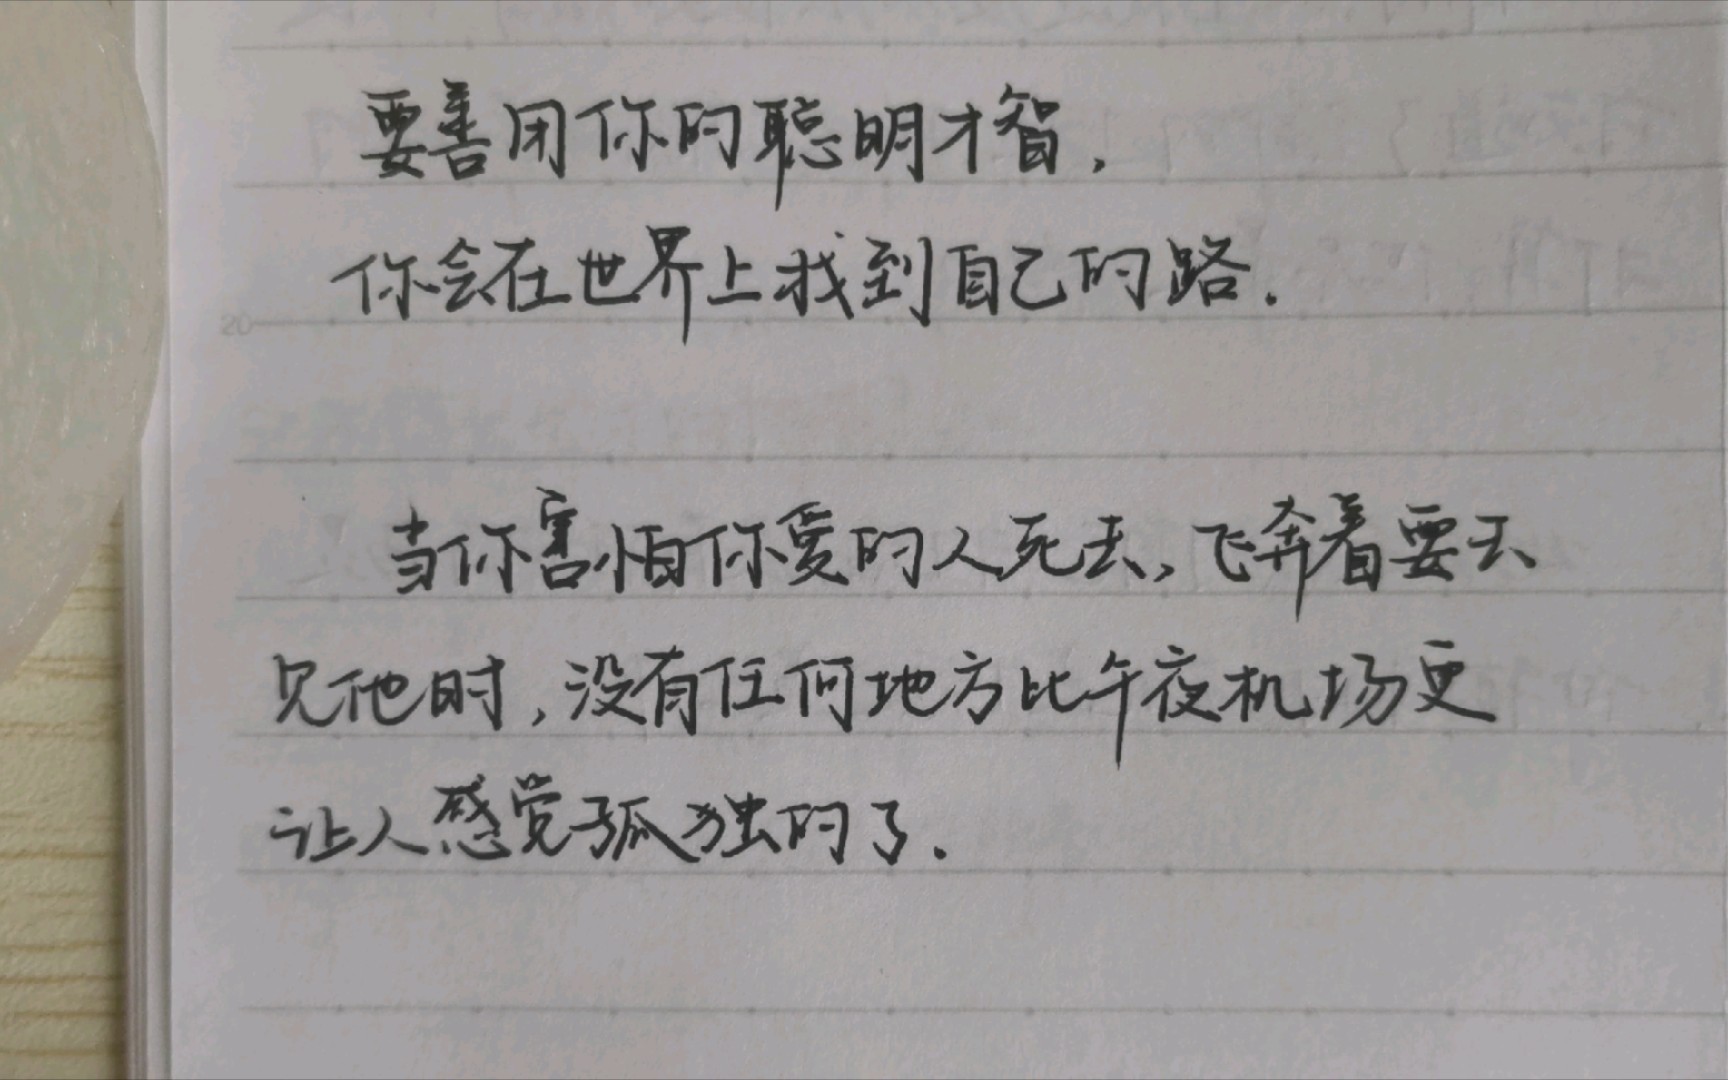 要善用你的聪明才智,
你会在世界上找到自己的路.
20
当你害怕你爱的人死去,飞奔着要去
见他时,没有任何地方比午夜机场更
让人感觉孤独的了.